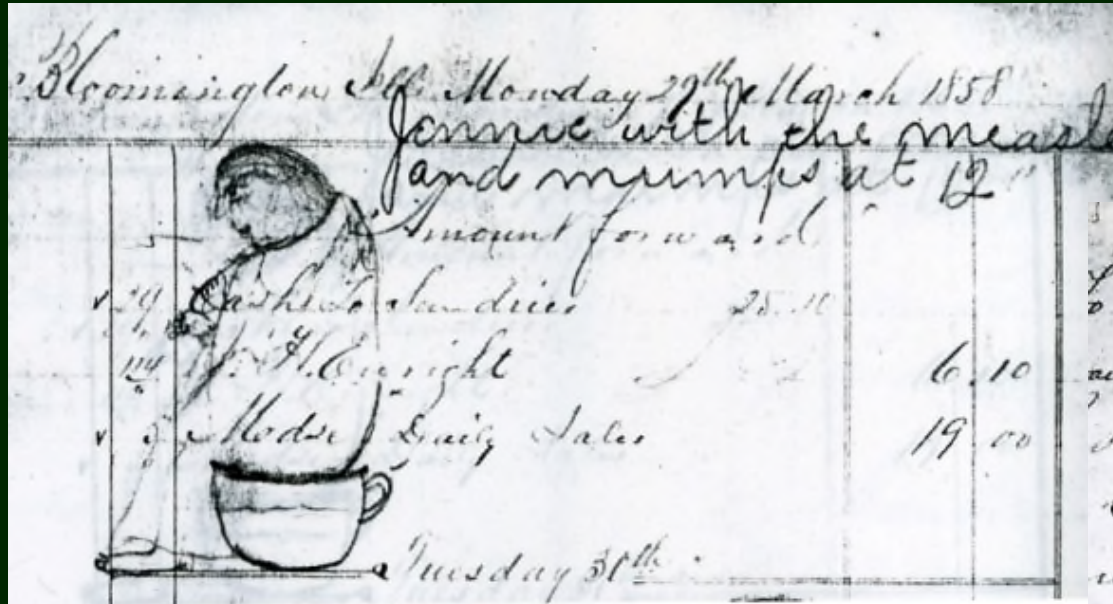 Bloomington Ills. Monday 29th March 1858
Jonnie with the measl
and mumps at 12
Amount forward
29 Cash to Sundries 25.10
114 Enright 6.10
Mdse Daily Sales 19.00
Tuesday 30th